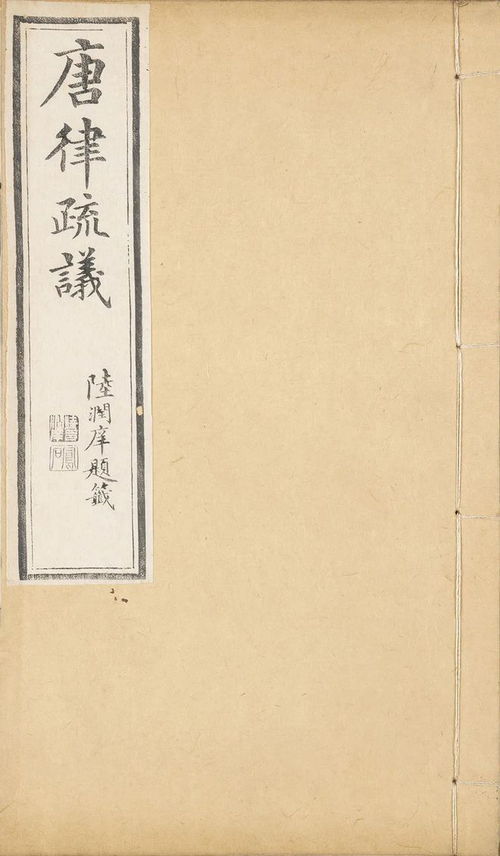 唐律疏議
陸潤庠題籤